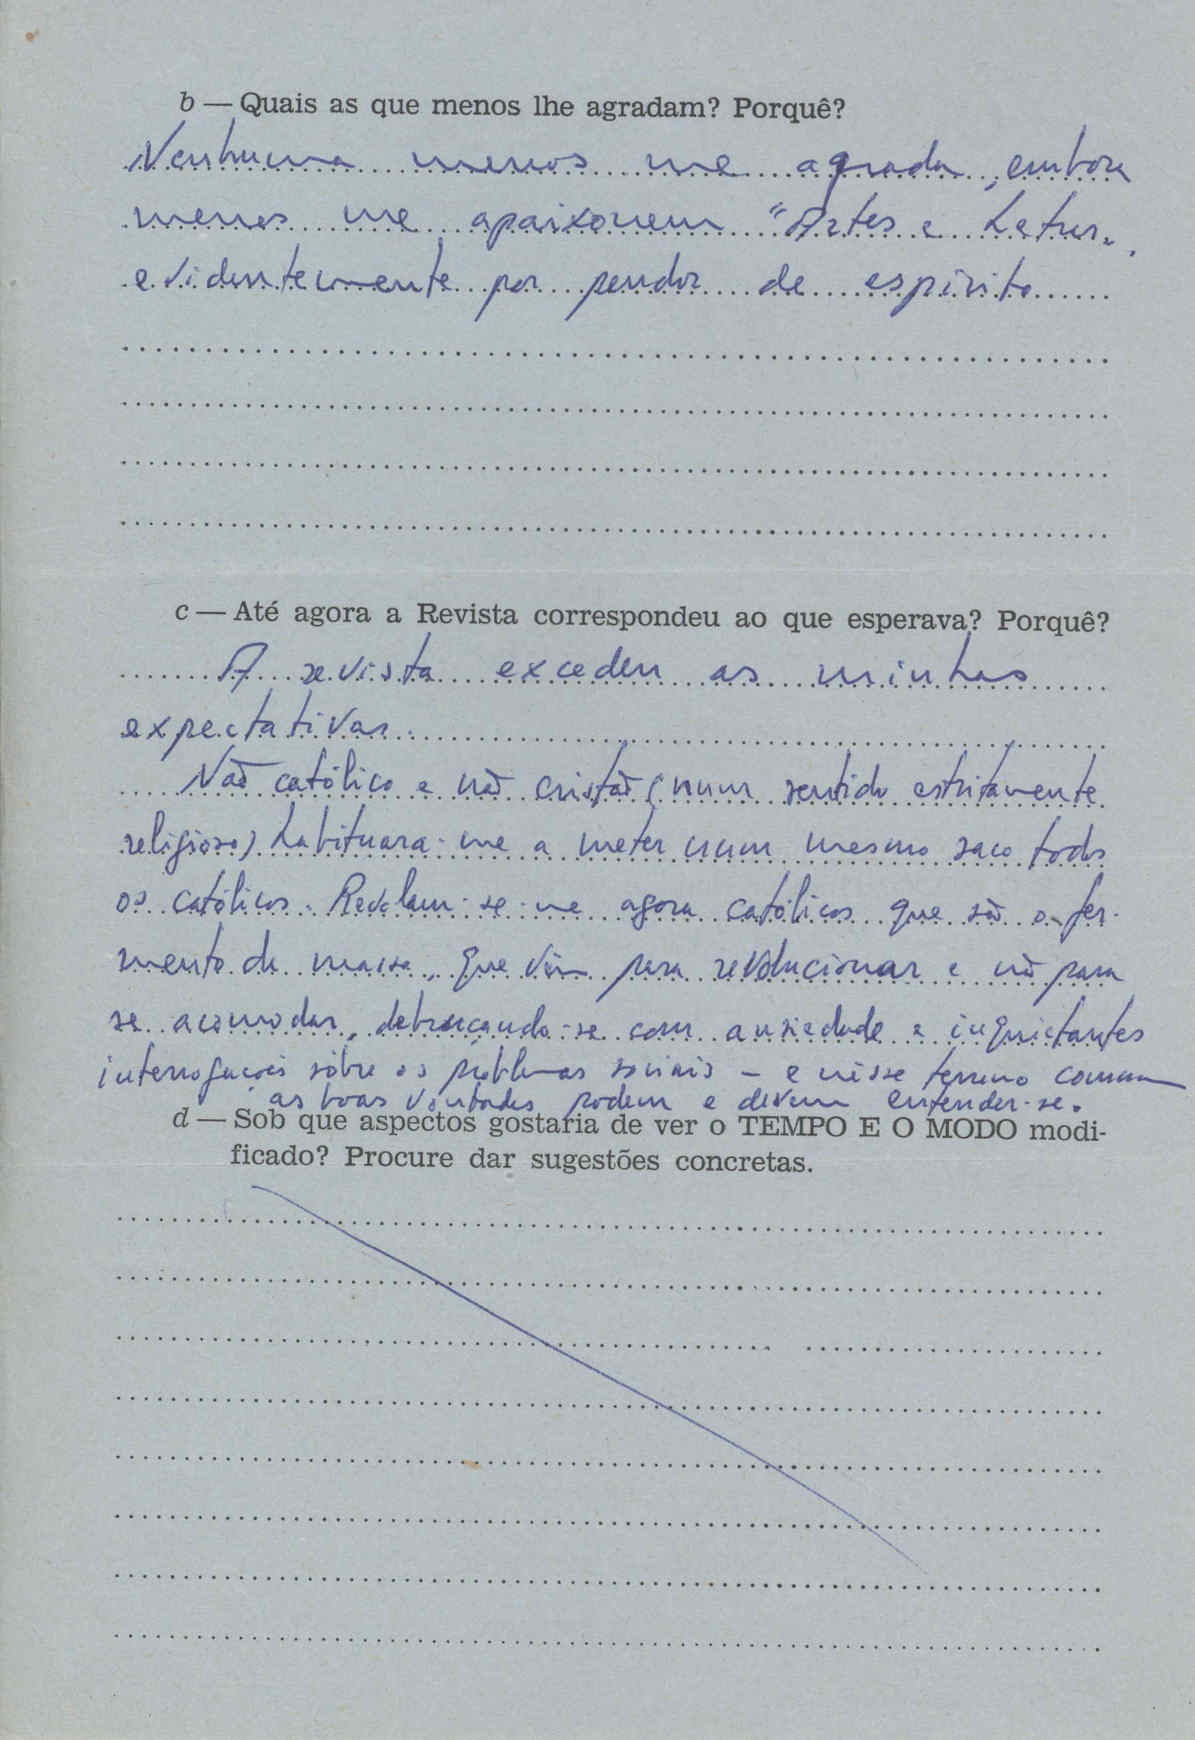 b — Quais as que menos lhe agradam? Porquê?
Nenhuma menos me agrada, embora
menos me apaixonem "Artes e Letras",
evidentemente por pendor de espírito
c — Até agora a Revista correspondeu ao que esperava? Porquê?
A revista excedeu as minhas
expectativas.
Não católico e não cristão (num sentido estritamente
religioso) habituara-me a meter num mesmo saco todos
os católicos. Revelam-se-me agora católicos que são o fer-
mento da massa, que vêm para revolucionar e não para
se acomodar, debruçando-se com ansiedade e inquietantes
interrogações sôbre os problemas sociais — e nisse terreno comum
as boas vontades podem e devem entender-se.
d — Sob que aspectos gostaria de ver o TEMPO E O MODO modi-
ficado? Procure dar sugestões concretas.